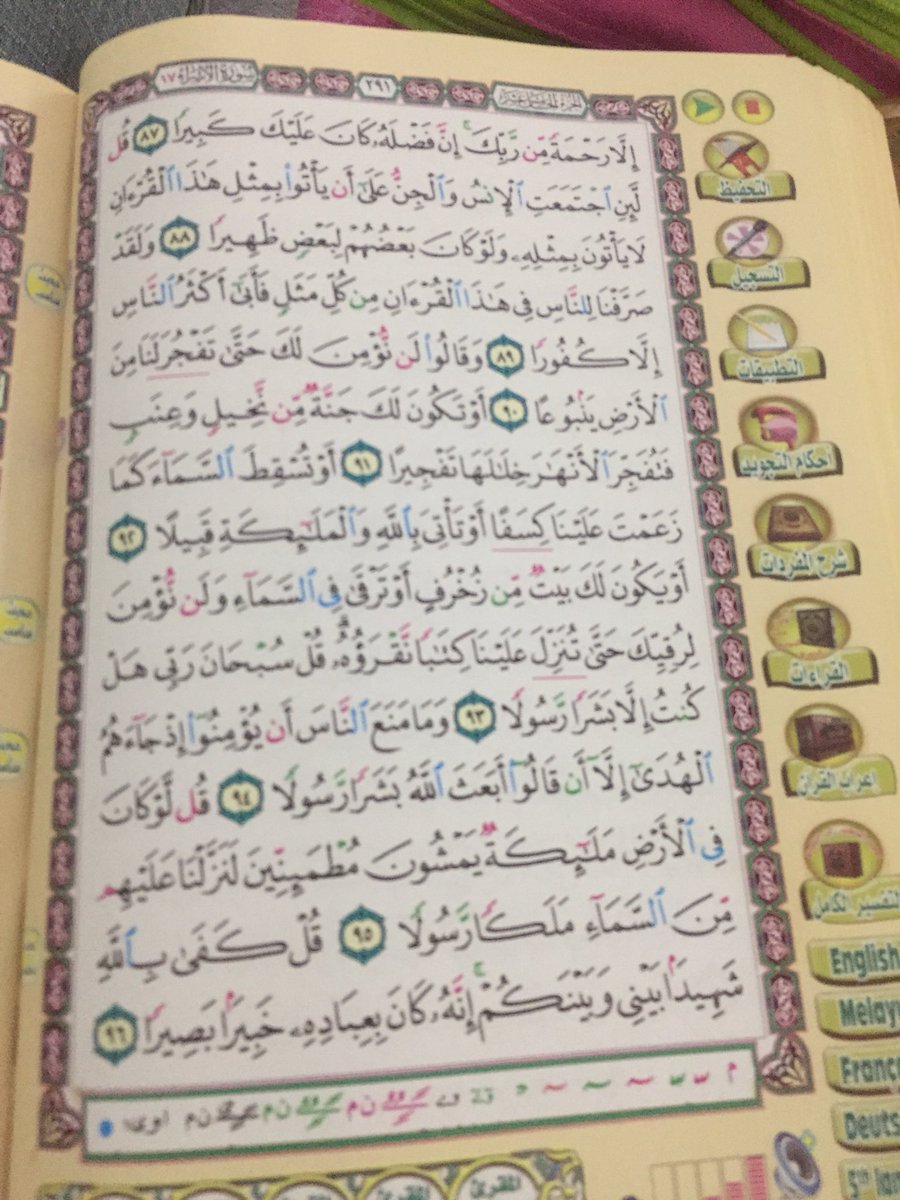 سورة الإسراء ١٧
٢٩١
الجزء الخامس عشر
إِلَّا رَحْمَةً مِّن رَّبِّكَ إِنَّ فَضْلَهُۥ كَانَ عَلَيْكَ كَبِيرًا ٨٧ قُل
لَّئِنِ ٱجْتَمَعَتِ ٱلْإِنسُ وَٱلْجِنُّ عَلَىٰٓ أَن يَأْتُوا۟ بِمِثْلِ هَٰذَا ٱلْقُرْءَانِ
لَا يَأْتُونَ بِمِثْلِهِۦ وَلَوْ كَانَ بَعْضُهُمْ لِبَعْضٍ ظَهِيرًا ٨٨ وَلَقَدْ
صَرَّفْنَا لِلنَّاسِ فِى هَٰذَا ٱلْقُرْءَانِ مِن كُلِّ مَثَلٍ فَأَبَىٰٓ أَكْثَرُ ٱلنَّاسِ
إِلَّا كُفُورًا ٨٩ وَقَالُوا۟ لَن نُّؤْمِنَ لَكَ حَتَّىٰ تَفْجُرَ لَنَا مِنَ
ٱلْأَرْضِ يَنۢبُوعًا ٩٠ أَوْ تَكُونَ لَكَ جَنَّةٌ مِّن نَّخِيلٍ وَعِنَبٍ
فَتُفَجِّرَ ٱلْأَنْهَٰرَ خِلَٰلَهَا تَفْجِيرًا ٩١ أَوْ تُسْقِطَ ٱلسَّمَآءَ كَمَا
زَعَمْتَ عَلَيْنَا كِسَفًا أَوْ تَأْتِىَ بِٱللَّهِ وَٱلْمَلَٰٓئِكَةِ قَبِيلًا ٩٢
أَوْ يَكُونَ لَكَ بَيْتٌ مِّن زُخْرُفٍ أَوْ تَرْقَىٰ فِى ٱلسَّمَآءِ وَلَن نُّؤْمِنَ
لِرُقِيِّكَ حَتَّىٰ تُنَزِّلَ عَلَيْنَا كِتَٰبًا نَّقْرَؤُهُۥ قُلْ سُبْحَانَ رَبِّى هَلْ
كُنتُ إِلَّا بَشَرًا رَّسُولًا ٩٣ وَمَا مَنَعَ ٱلنَّاسَ أَن يُؤْمِنُوٓا۟ إِذْ جَآءَهُمُ
ٱلْهُدَىٰٓ إِلَّآ أَن قَالُوٓا۟ أَبَعَثَ ٱللَّهُ بَشَرًا رَّسُولًا ٩٤ قُل لَّوْ كَانَ
فِى ٱلْأَرْضِ مَلَٰٓئِكَةٌ يَمْشُونَ مُطْمَئِنِّينَ لَنَزَّلْنَا عَلَيْهِم
مِّنَ ٱلسَّمَآءِ مَلَكًا رَّسُولًا ٩٥ قُلْ كَفَىٰ بِٱللَّهِ
شَهِيدًۢا بَيْنِى وَبَيْنَكُمْ إِنَّهُۥ كَانَ بِعِبَادِهِۦ خَبِيرًۢا بَصِيرًا ٩٦
التحفيظ
التسجيل
التطبيقات
أحكام التجويد
شرح المفردات
القراءات
إعراب القرآن
التفسير الكامل
English
Melayu
França
Deuts